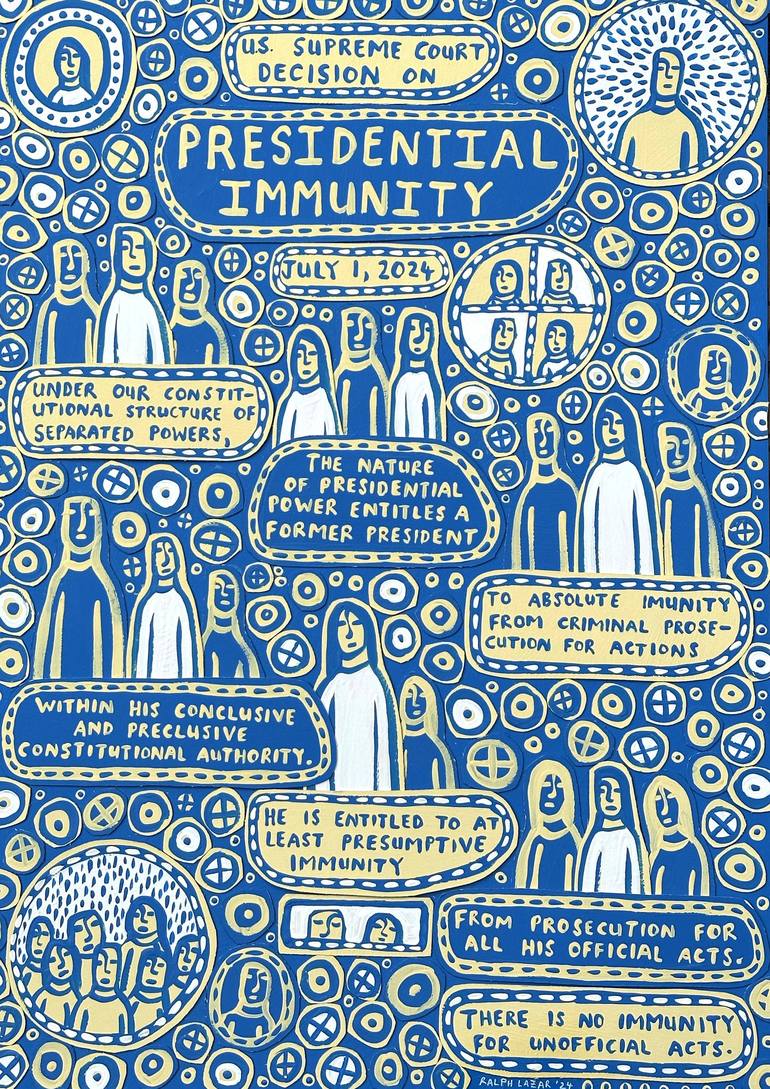 U.S. SUPREME COURT
DECISION ON
PRESIDENTIAL
IMMUNITY
JULY 1, 2024
UNDER OUR CONSTIT-
UTIONAL STRUCTURE OF
SEPARATED POWERS,
THE NATURE
OF PRESIDENTIAL
POWER ENTITLES A
FORMER PRESIDENT
TO ABSOLUTE IMUNITY
FROM CRIMINAL PROSE-
CUTION FOR ACTIONS
WITHIN HIS CONCLUSIVE
AND PRECLUSIVE
CONSTITUTIONAL AUTHORITY.
HE IS ENTITLED TO AT
LEAST PRESUMPTIVE
IMMUNITY
FROM PROSECUTION FOR
ALL HIS OFFICIAL ACTS.
THERE IS NO IMMUNITY
FOR UNOFFICIAL ACTS.
RALPH LAZAR '24